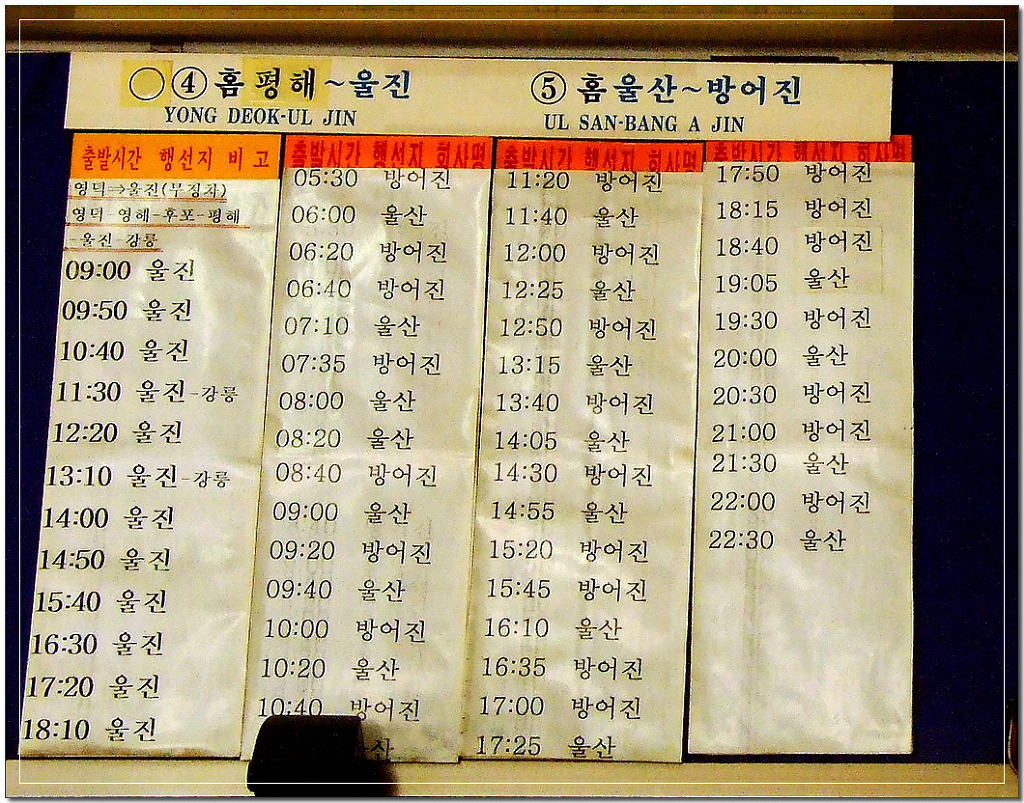 ④ 홈 평해~울진
YONG DEOK-UL JIN
⑤ 홈울산~방어진
UL SAN-BANG A JIN
출발시간 행선지 비고
영덕⇒울진(무정차)
영덕-영해-후포-평해
-울진-강릉
09:00 울진
09:50 울진
10:40 울진
11:30 울진-강릉
12:20 울진
13:10 울진-강릉
14:00 울진
14:50 울진
15:40 울진
16:30 울진
17:20 울진
18:10 울진
출발시간 행선지 회사명
05:30 방어진
06:00 울산
06:20 방어진
06:40 방어진
07:10 울산
07:35 방어진
08:00 울산
08:20 울산
08:40 방어진
09:00 울산
09:20 방어진
09:40 울산
10:00 방어진
10:20 울산
10:40 방어진
산
출발시간 행선지 회사명
11:20 방어진
11:40 울산
12:00 방어진
12:25 울산
12:50 방어진
13:15 울산
13:40 방어진
14:05 울산
14:30 방어진
14:55 울산
15:20 방어진
15:45 방어진
16:10 울산
16:35 방어진
17:00 방어진
17:25 울산
출발시간 행선지 회사명
17:50 방어진
18:15 방어진
18:40 방어진
19:05 울산
19:30 방어진
20:00 울산
20:30 방어진
21:00 방어진
21:30 울산
22:00 방어진
22:30 울산